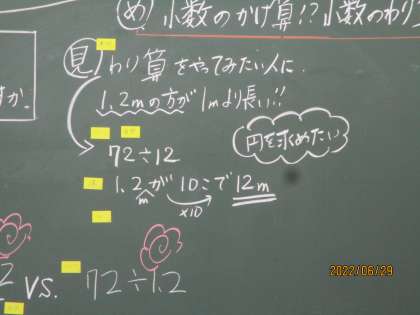 め 小数のかけ算!?小数のわり
見 わり算をやってみたい人に.
1.2mの方が1mより長い!!
すか.
円を求めたい
72÷12
1.2mが10こで12m
×10
2 vs. 72÷1.2
2022/06/29